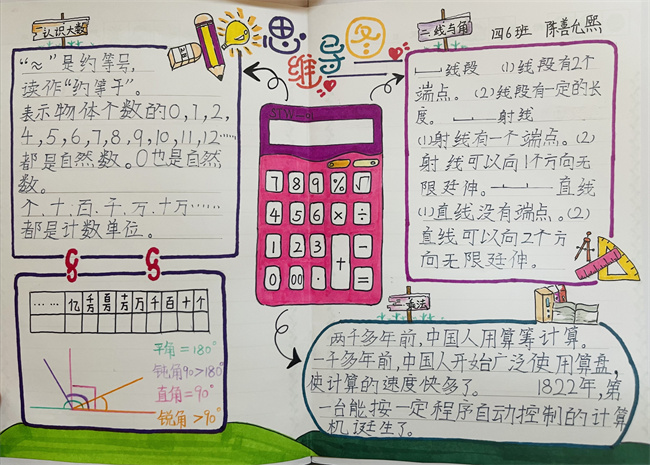 一 认识大数
“≈”是约等号,
读作“约等于”。
表示物体个数的0,1,2,
4,5,6,7,8,9,10,11,12……
都是自然数。0也是自然
数。
个、十、百、千、万、十万……
都是计数单位。
…… 亿 千万 百万 十万 万 千 百 十 个
平角=180°
钝角90>180°
直角=90°
锐角>90°
思维导图
7 8 9 % √
4 5 6 × ÷
1 2 3 + −
0 00 · =
二 线与角
四6班 陈善允熙
线段 (1)线段有2个
端点。(2)线段有一定的长
度。 射线
(1)射线有一个端点。(2)
射线可以向1个方向无
限延伸。 直线
(1)直线没有端点。(2)
直线可以向2个方
向无限延伸。
两千多年前,中国人用算筹计算。
一千多年前,中国人开始广泛使用算盘,
使计算的速度快多了。 1822年,第
一台能按一定程序自动控制的计算
机诞生了。